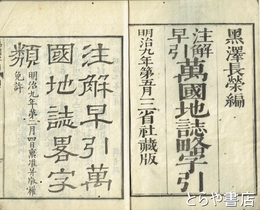 黒澤長榮編
注解
早引
萬國地誌略字引
明治九年第五月三省社蔵版
注解早引萬
國地誌畧字
類
明治九年第二月四日禀准蒙版権
免許
とらや書房